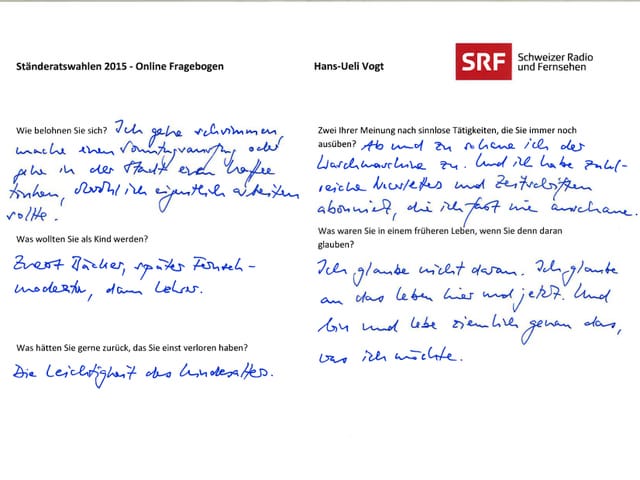 Ständeratswahlen 2015 - Online Fragebogen
Hans-Ueli Vogt
SRF Schweizer Radio
und Fernsehen
Wie belohnen Sie sich? Ich gehe schwimmen,
mache einen Sonntagsausflug oder
gehe in der Stadt einen Kaffee
trinken, obwohl ich eigentlich arbeiten
sollte.
Was wollten Sie als Kind werden?
Zuerst Bäcker, später Fernseh-
moderator, dann Lehrer.
Was hätten Sie gerne zurück, das Sie einst verloren haben?
Die Leichtigkeit des Kindesalters.
Zwei Ihrer Meinung nach sinnlose Tätigkeiten, die Sie immer noch
ausüben? Ab und zu schaue ich der
Waschmaschine zu. Und ich habe zahl-
reiche Newsletter und Zeitschriften
abonniert, die ich fast nie anschaue.
Was waren Sie in einem früheren Leben, wenn Sie denn daran
glauben?
Ich glaube nicht daran. Ich glaube
an das Leben hier und jetzt. Und
bin und lebe ziemlich genau das,
was ich möchte.